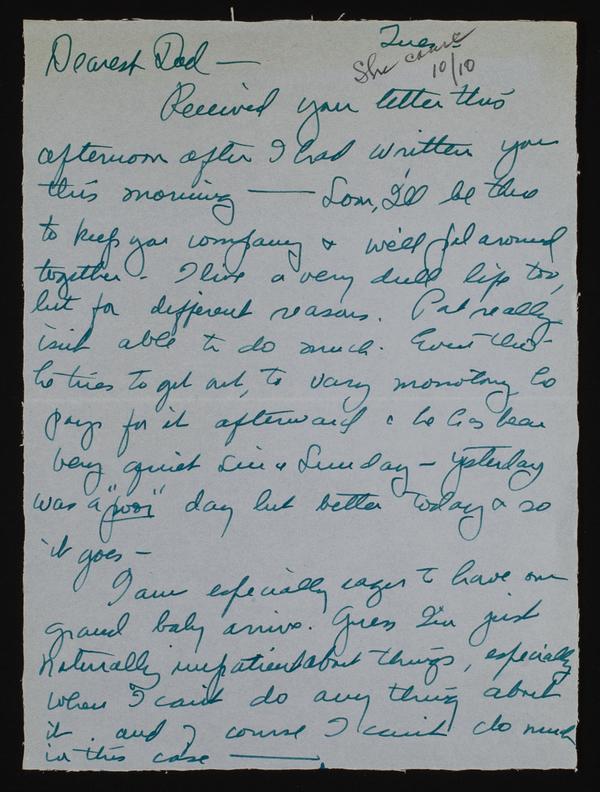 Tues -
She came
10/10
Dearest Dad —
Received your letter this
afternoon after I had written you
this morning — Soon, I'll be there
to keep you company & we'll gad around
together - I live a very dull life too,
but for different reasons. Pat really
isn't able to do much. Even tho -
he tries to get out, to vary monotony he
pays for it afterward & he has been
very quiet since Sunday - yesterday
was a "poor" day but better today & so
it goes -
I am especially eager to have our
grand baby arrive. Guess I'm just
naturally impatient about things, especially
when I can't do any thing about
it. and of course I can't do much
in this case —